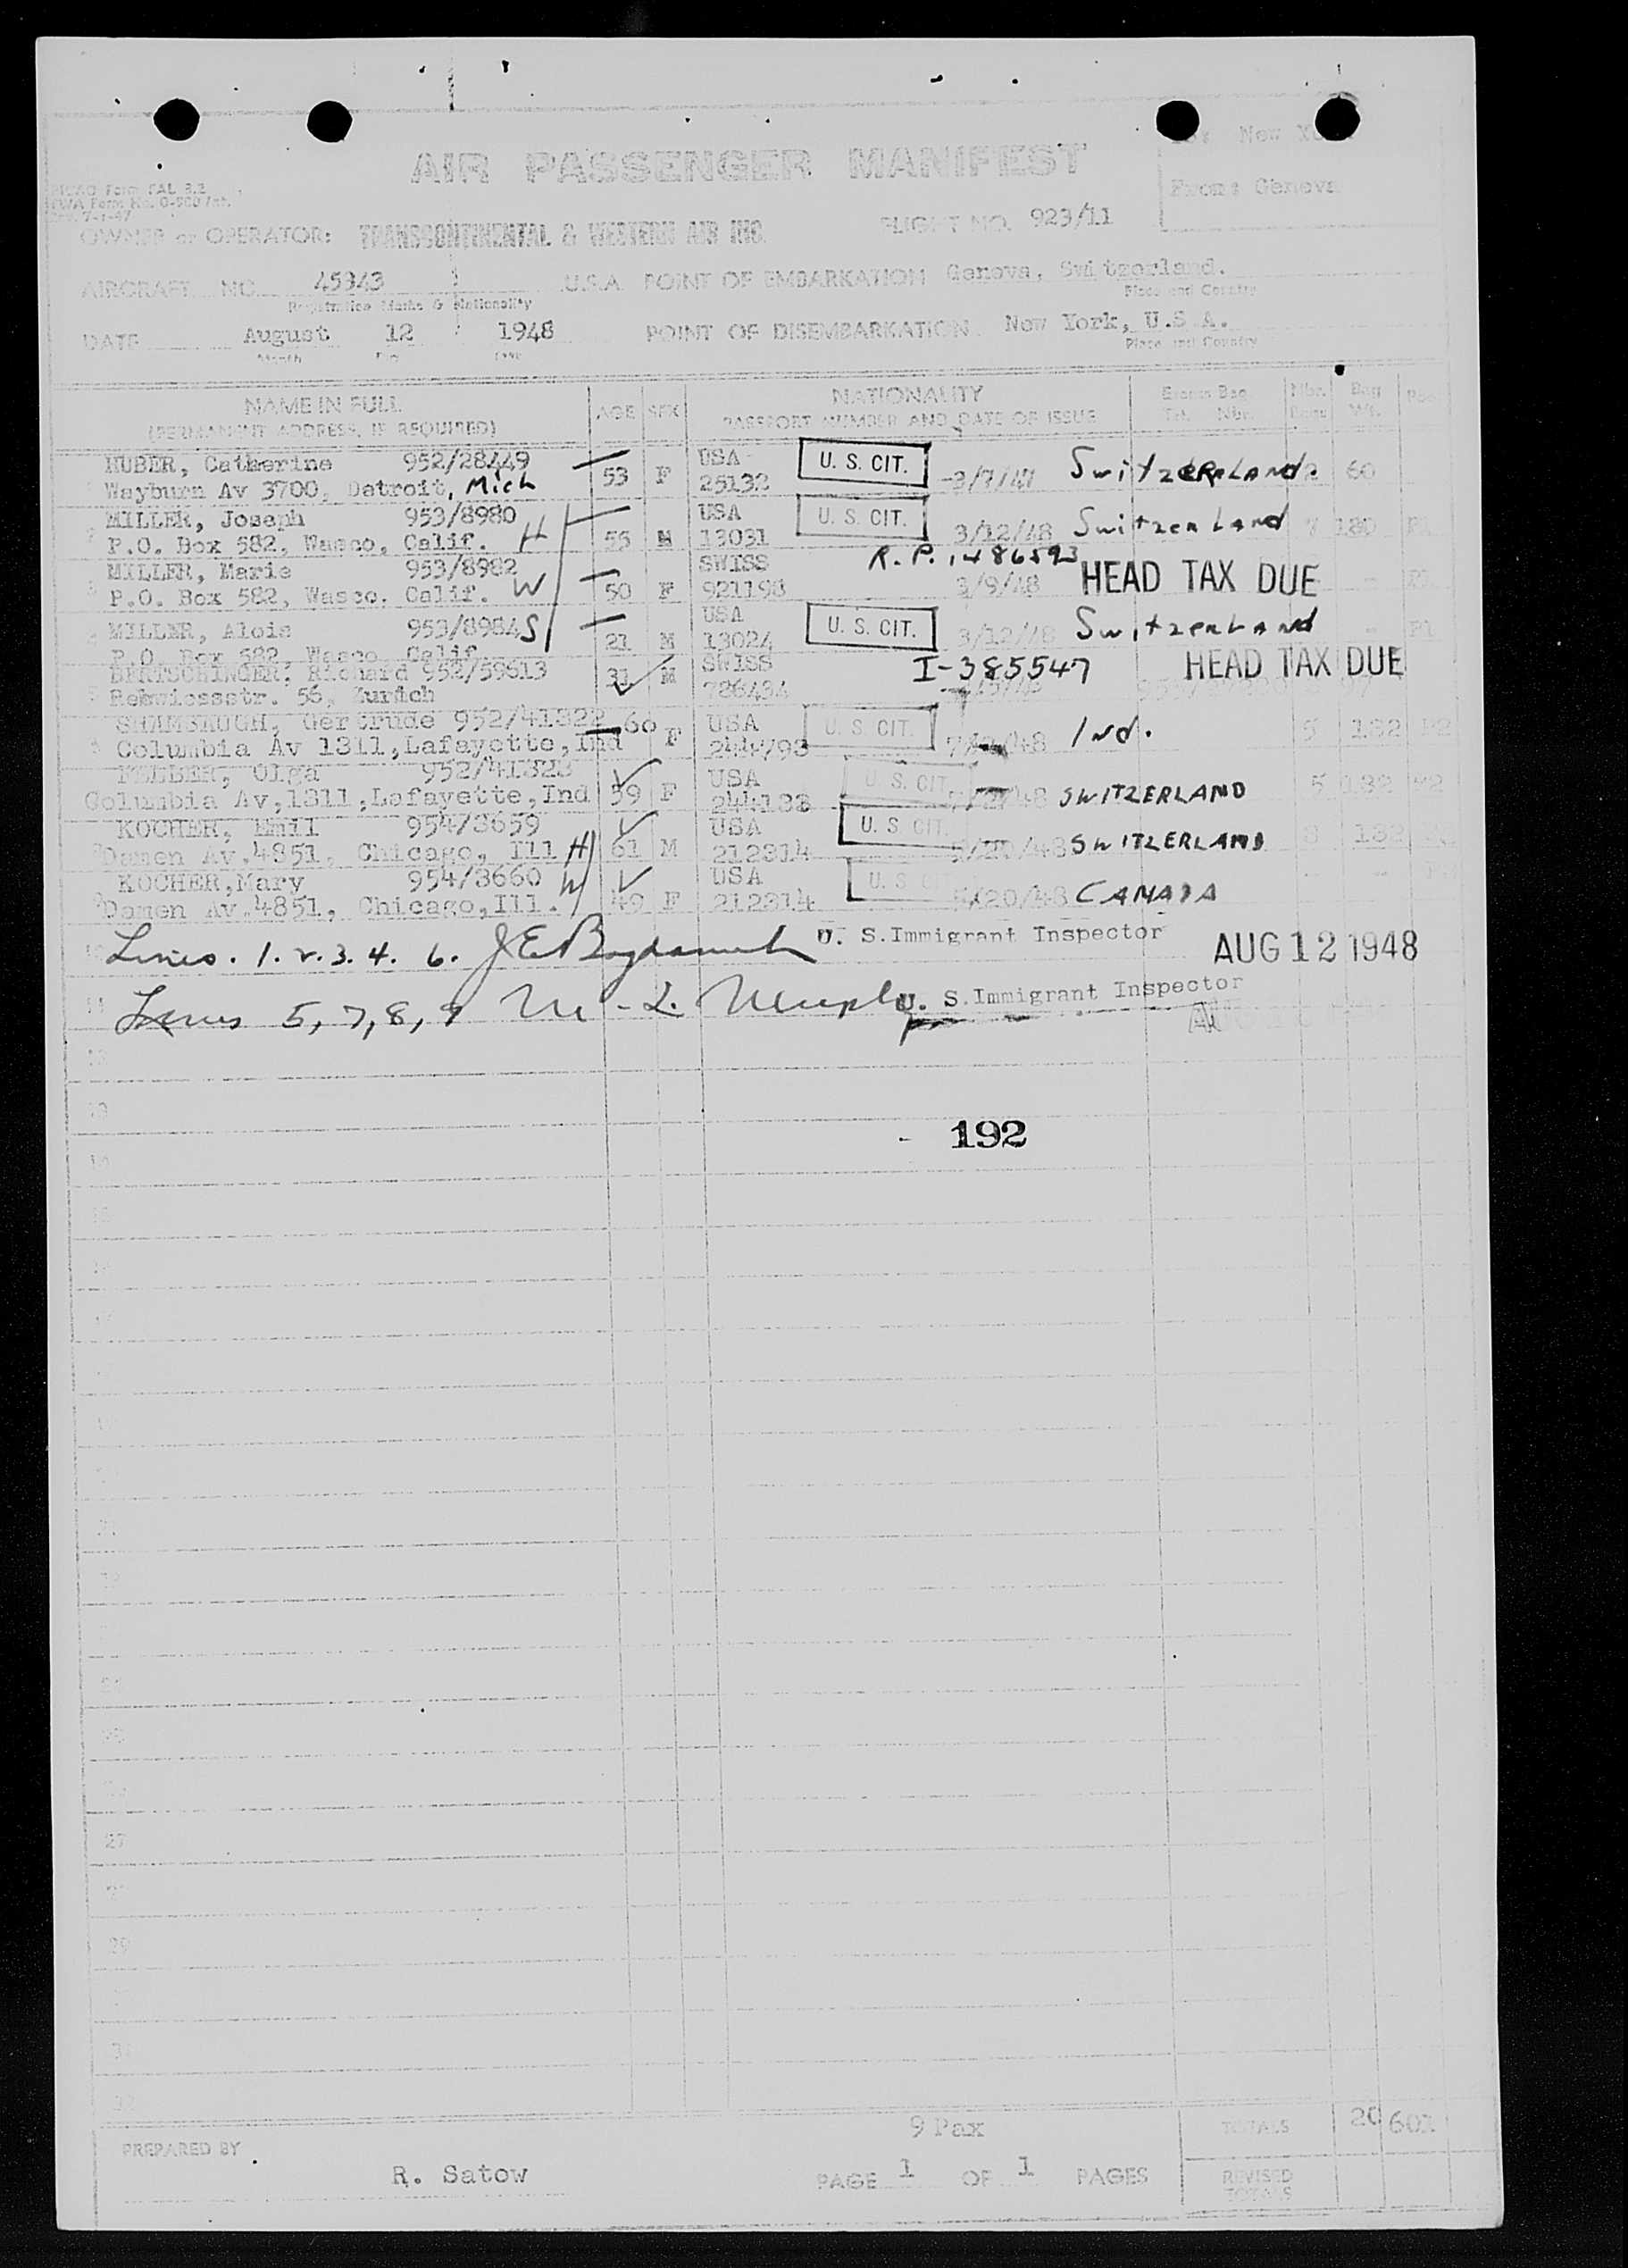 New
AIR PASSENGER MANIFEST
From: Geneva
7-1-47
OWNER or OPERATOR: TRANSCONTINENTAL & WESTERN AIR INC. FLIGHT NO. 923/11
AIRCRAFT NO. 45343 U.S.A. POINT OF EMBARKATION Geneva, Switzerland.
Registration Marks & Nationality Place and Country
DATE August 12 1948 POINT OF DISEMBARKATION New York, U.S.A.
Month Day Year Place and Country
NAME IN FULL AGE SEX NATIONALITY Excess Bag Nbr. Bag
(PERMANENT ADDRESS, IF REQUIRED) PASSPORT NUMBER AND DATE OF ISSUE Tkt. Nbr. Bags Wt.
HUBER, Catherine 952/28449 USA U. S. CIT.
Wayburn Av 3700, Detroit, Mich 53 F 25132 3/7/47 Switzerland. 2 60
MILLER, Joseph 953/8980 USA U. S. CIT.
P.O. Box 582, Wasco, Calif. H 55 M 13031 3/12/48 Switzerland 7 180 P1
MILLER, Marie 953/8982 SWISS R.P. 1486593
P.O. Box 582, Wasco. Calif. W 50 F 921198 3/9/48 HEAD TAX DUE - P1
MILLER, Alois 953/8984 S USA U. S. CIT.
P.O. Box 582, Wasco Calif. 21 M 13024 3/12/48 Switzerland - P1
BERTSCHINGER, Richard 952/59613 SWISS I-385547 HEAD TAX DUE
Rebwiessstr. 56, Zurich 31 M 786434
SHAMBAUGH, Gertrude 952/41322 60 USA U. S. CIT.
Columbia Av 1311,Lafayette,Ind F 244793 Ind. 5 132 P2
FELBER, Olga 952/41323 USA U. S. CIT.
Columbia Av,1311,Lafayette,Ind 59 F 244188 SWITZERLAND 5 132 P2
KOCHER, Emil 954/3659 USA U. S. CIT.
Damen Av.4851, Chicago, Ill H 61 M 212314 5/20/48 SWITZERLAND 132
KOCHER,Mary 954/3660 W USA U. S. CIT.
Damen Av.4851, Chicago,Ill. 49 F 212314 5/20/48 CANADA
Lines. 1. 2. 3. 4. 6. U. S.Immigrant Inspector AUG 12 1948
11 Lines 5, 7, 8, 9 M - L. Murphy U. S.Immigrant Inspector
13
192
27
29
9 Pax TOTALS 20 601
PREPARED BY R. Satow PAGE 1 OF 1 PAGES REVISED
TOTALS